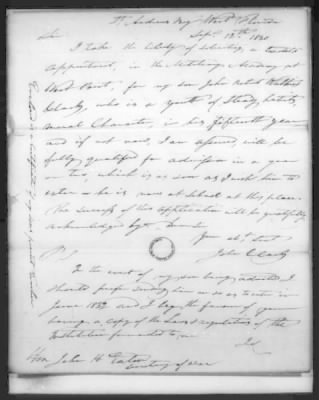 St Andrews Bay West Florida
Sept 12th 1830
Sir
I take the liberty of soliciting, a
appointment, in the Military Academy at
West Point, for my son John
Clark, who is a youth of Steady, habits,
moral Character, in his fifteenth year
and if not now, I am assured, will be
fully qualified for admission in a year
or two, which is as soon as I wish him to
enter as he is now at School at this place.
The success of this application will be gratefully
acknowledged by
Your obt Sert
John Clark
P S
In the event of my son being admitted, I
should prefer sending him on so as to enter in
June 1832 and I beg the favour of your
having a copy of the Laws & regulations of the
Institution forwarded to me
J C
Hon John H Eaton
Secretary of War